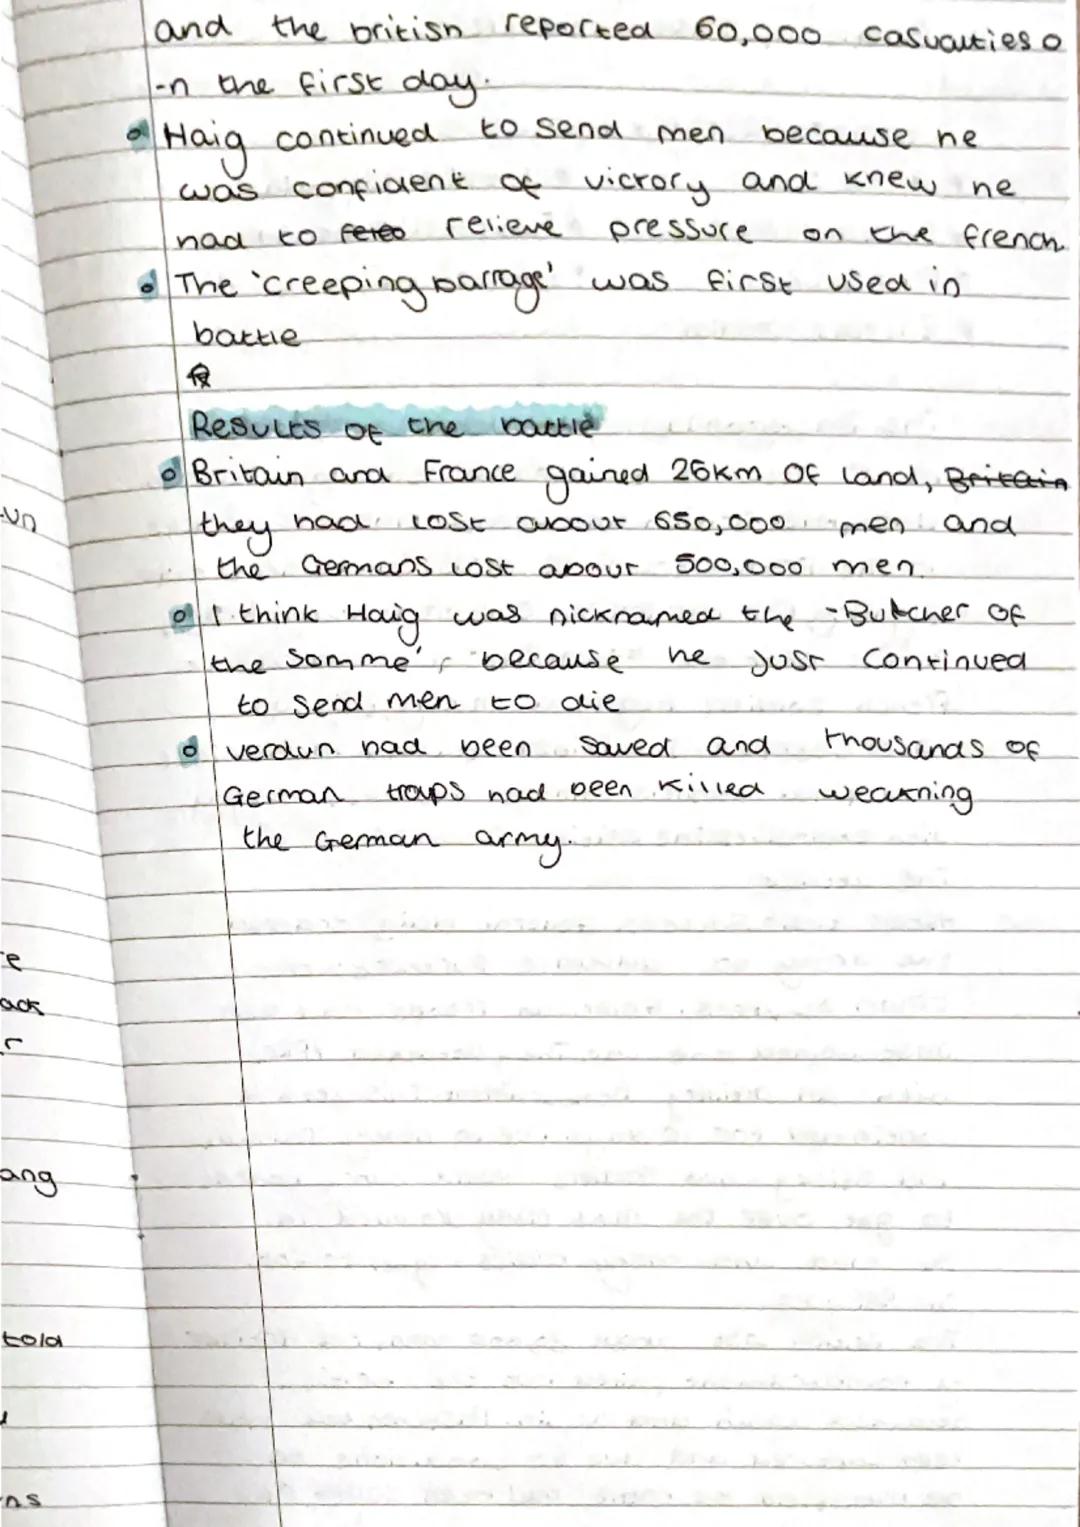 and the british reported 60,000 casualties o
-n the first day.
Haig continued to send men because he
was confident of victory and knew he
had to relieve pressure on the french.
The 'creeping barrage' was first used in
battle
Results of the battle
Britain and France gained 26km of land, Britain
they had lost about 650,000 men and
the Germans lost about 500,000 men.
I think Haig was nicknamed the -Butcher of
the Somme', because he just continued
to send men to die
verdun had been saved and thousands of
German troups had been killed weakning
the German army.
un
e
ack
r
ang
told
ns